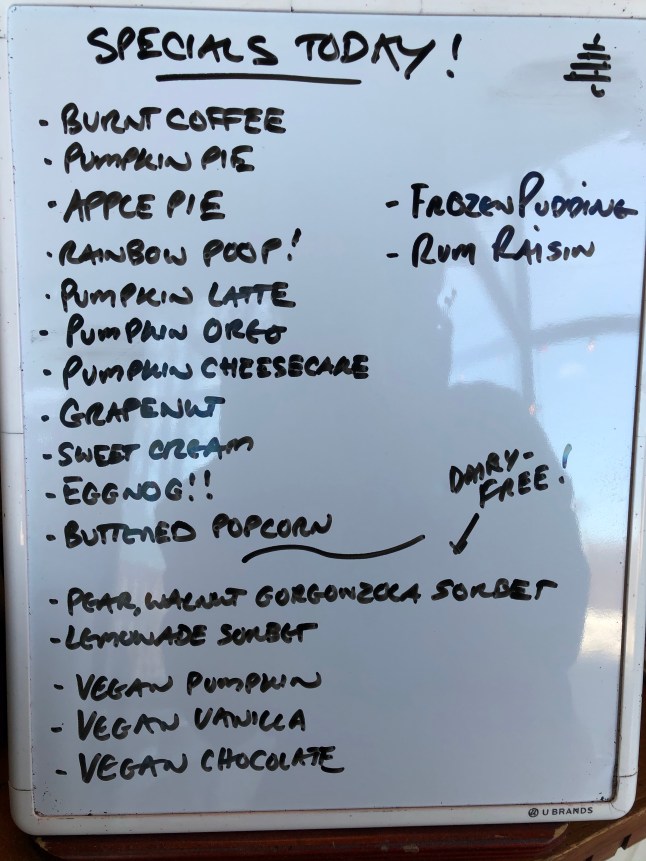 SPECIALS TODAY!
- BURNT COFFEE
- PUMPKIN PIE
- APPLE PIE
- RAINBOW POOP!
- PUMPKIN LATTE
- PUMPKIN OREO
- PUMPKIN CHEESECAKE
- GRAPENUT
- SWEET CREAM
- EGGNOG!!
- BUTTERED POPCORN
- FROZEN PUDDING
- RUM RAISIN
DAIRY-
FREE!
- PEAR, WALNUT GORGONZOLA SORBET
- LEMONADE SORBET
- VEGAN PUMPKIN
- VEGAN VANILLA
- VEGAN CHOCOLATE
U BRANDS